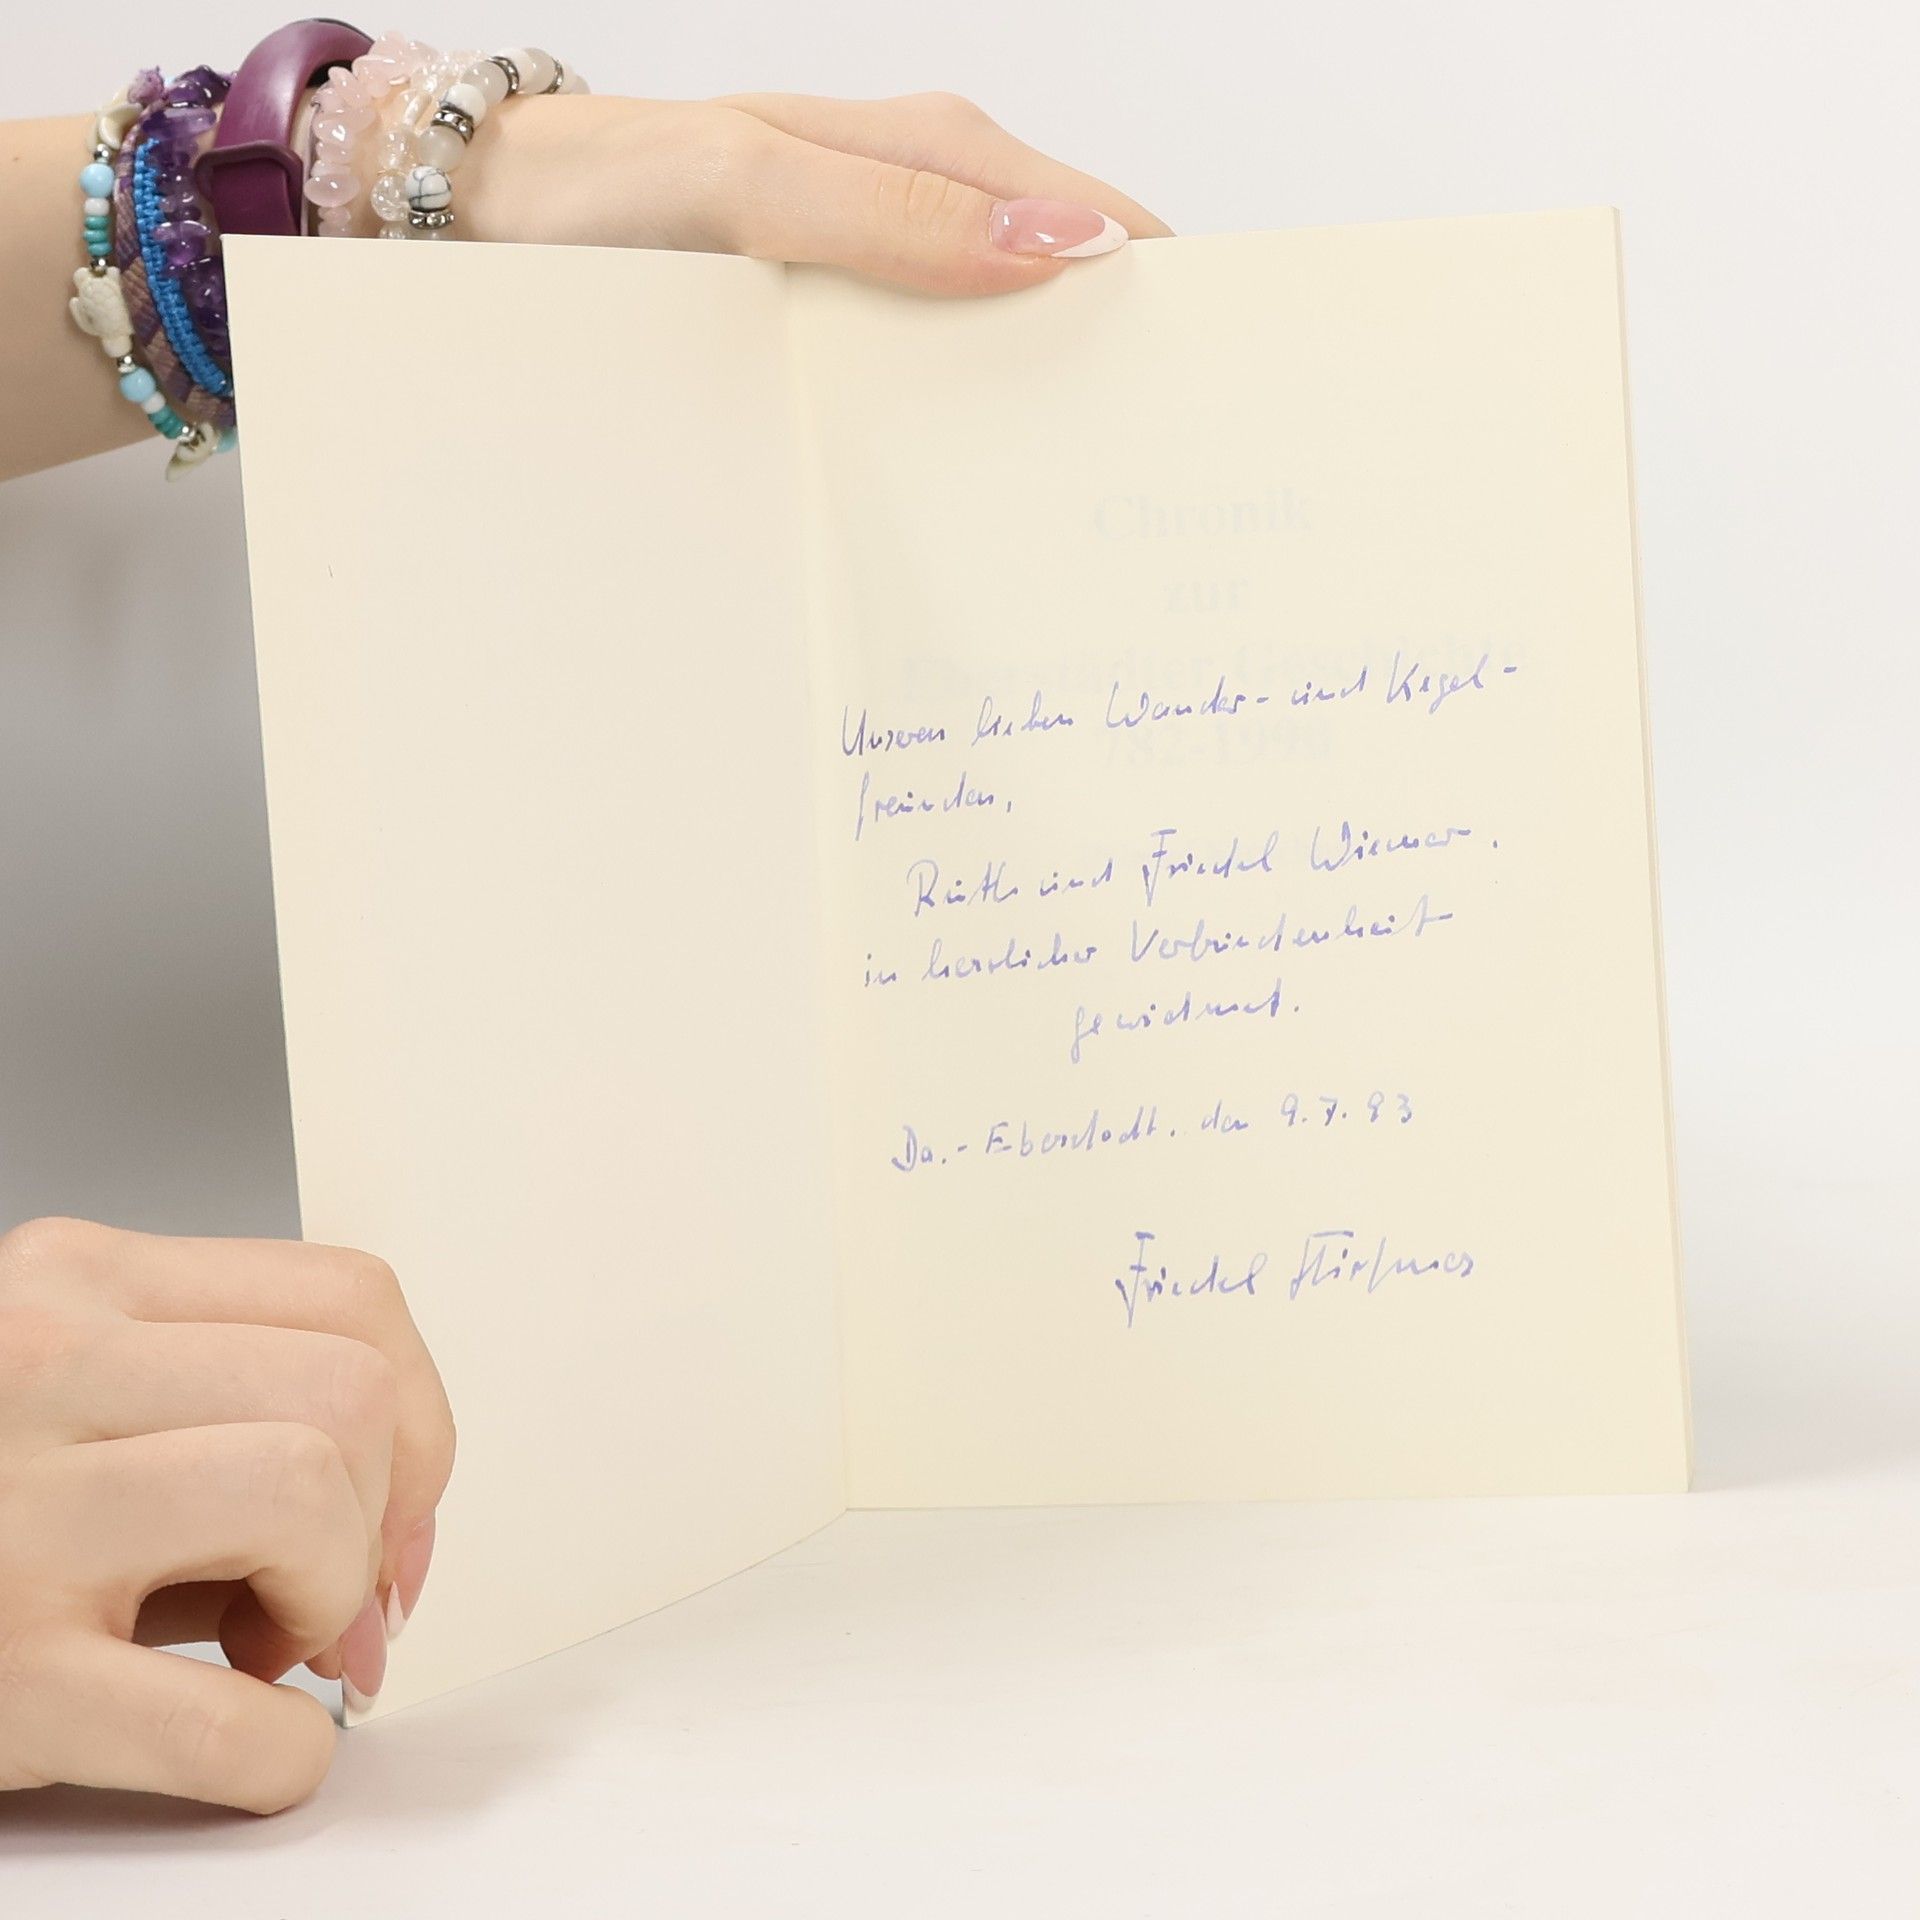 Chronik
zur
Eberstädter Geschichte
782-199
Unseren lieben Wander- und Kegel-
freunden,
Ruth und Friedel Wiemer,
in herzlicher Verbundenheit
gewidmet.
Da.-Eberstadt, den 9.7.93
Friedel